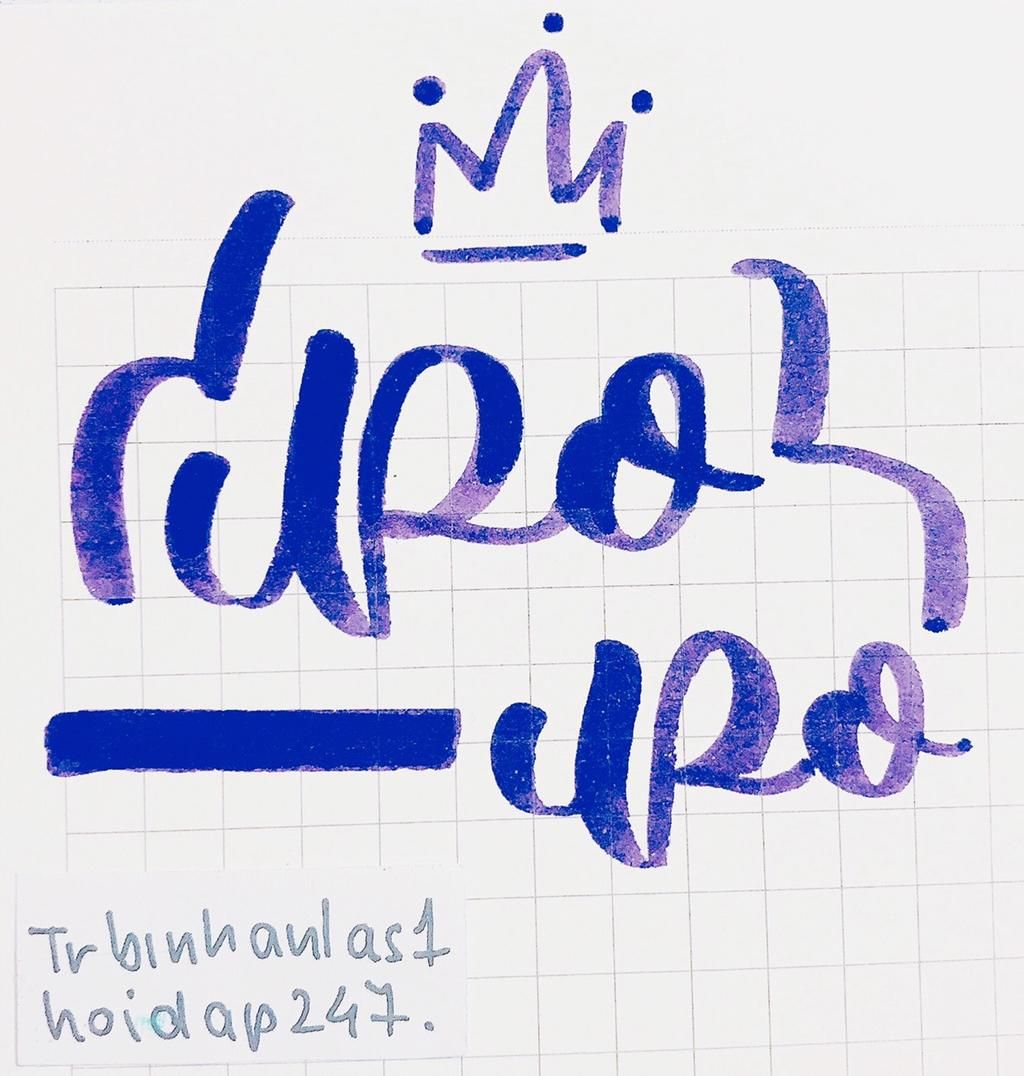 upo
upo
Trbinhanlas1
hoidap247.